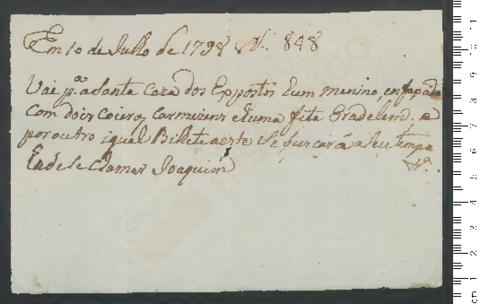 Em 10 de Julho de 1798 N. 848
Vai p.ª a Santa Caza dos Expostos hum menino, enfaxado
com dois Coeiros, e huma fita 
por outro igual Bilhete a este Se buscará a Seu tempo
hade Se Chamar Joaquim